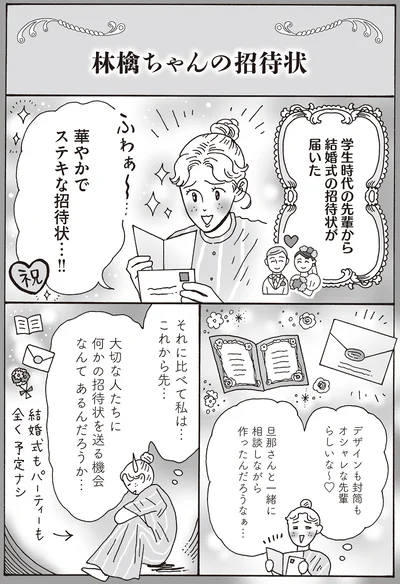 林檎ちゃんの招待状
学生時代の先輩から
結婚式の招待状が
届いた
ふわぁ〜…
華やかで
ステキな招待状…!!
祝
デザインも封筒も
オシャレな先輩
らしいな〜♡
旦那さんと一緒に
相談しながら
作ったんだろうなぁ…
それに比べて私は…
これから先…
大切な人たちに
何かの招待状を送る機会
なんて あるんだろうか…
結婚式もパーティーも
全く予定ナシ